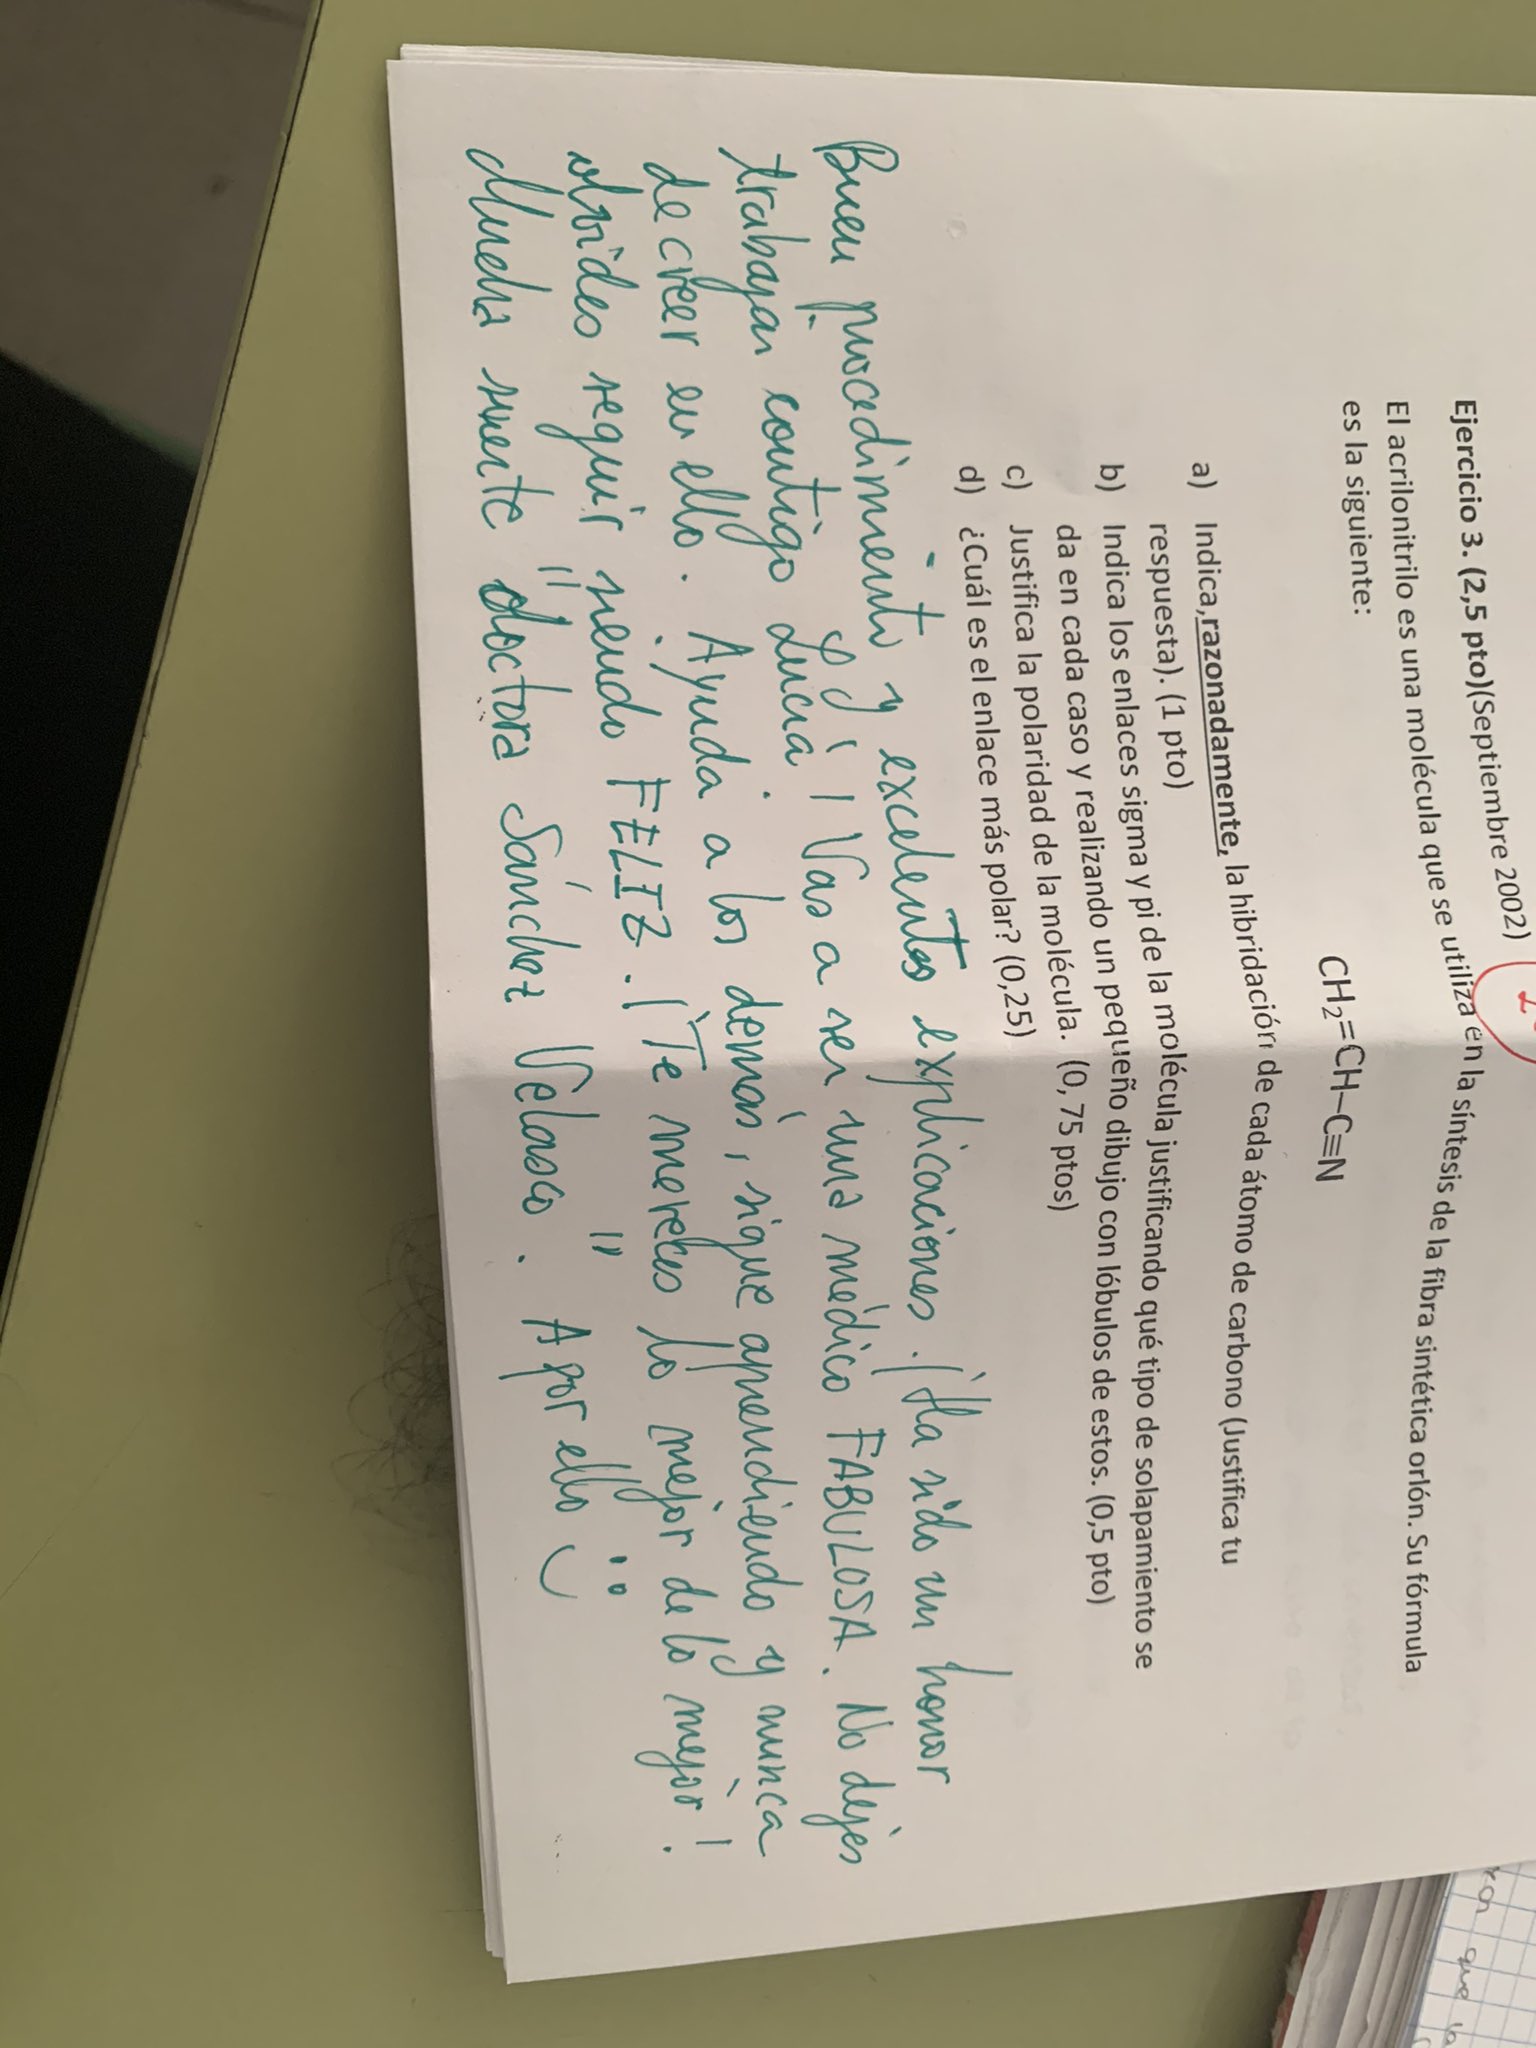 Ejercicio 3. (2,5 pto)(Septiembre 2002)
El acrilonitrilo es una molécula que se utiliza en la síntesis de la fibra sintética orlón. Su fórmula
es la siguiente:
CH₂=CH–C≡N
a) Indica, razonadamente, la hibridación de cada átomo de carbono (Justifica tu
respuesta). (1 pto)
b) Indica los enlaces sigma y pi de la molécula justificando qué tipo de solapamiento se
da en cada caso y realizando un pequeño dibujo con lóbulos de estos. (0,5 pto)
c) Justifica la polaridad de la molécula. (0, 75 ptos)
d) ¿Cuál es el enlace más polar? (0,25)
Buen procedimiento y excelentes explicaciones. ¡Ha sido un honor
trabajar contigo Lucía! Vas a ser una médico FABULOSA. No dejes
de creer en ello. Ayuda a los demás, sigue aprendiendo y nunca
olvides seguir siendo FELIZ. ¡Te mereces lo mejor de lo mejor!
Mucha suerte "doctora Sánchez Velasco". A por ello
que la